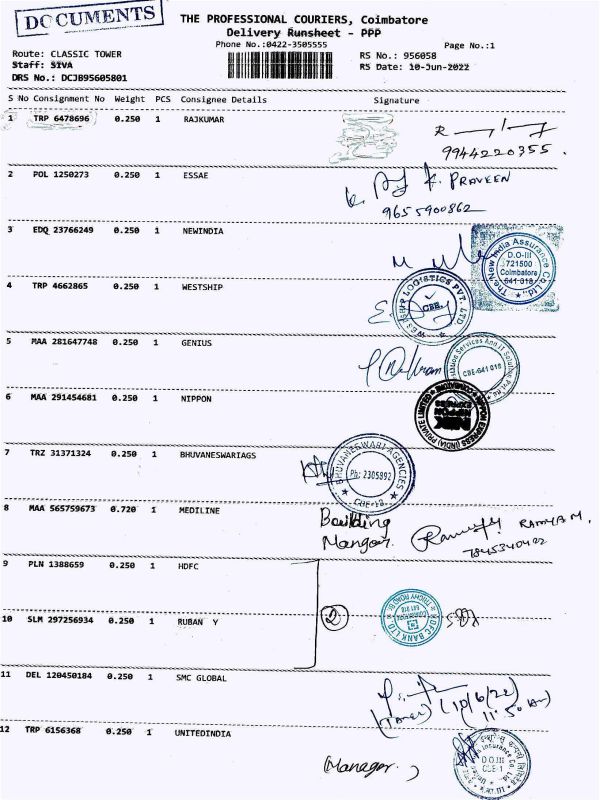 DOCUMENTS
THE PROFESSIONAL COURIERS, Coimbatore
Delivery Runsheet - PPP
Phone No.:0422-3505555
Page No.:1
Route: CLASSIC TOWER
Staff: SIVA
DRS No.: DCJB95605801
RS No.: 956058
RS Date: 10-Jun-2022
S No Consignment No Weight PCS Consignee Details Signature
1 TRP 6478696 0.250 1 RAJKUMAR
9944220355.
2 POL 1250273 0.250 1 ESSAE
K. PRAVEEN
9655900862
3 EDQ 23766249 0.250 1 NEWINDIA
The New India Assurance Co. Ltd.,
D.O-III
721500
Coimbatore
641 018
4 TRP 4662865 0.250 1 WESTSHIP
WESTSHIP LOGISTICS PVT. LTD.
CBE.
5 MAA 281647748 0.250 1 GENIUS
Services And IT Solutions Pvt. Ltd.
CBE-641 018
6 MAA 291454681 0.250 1 NIPPON
NIPPON EXPRESS (INDIA) PRIVATE LIMITED
NIPPON
EXPRESS
7 TRZ 31371324 0.250 1 BHUVANESWARIAGS
BHUVANESWARI AGENCIES
Ph: 2305892
CBE-18
8 MAA 565759673 0.720 1 MEDILINE
Building
Manger.
RAMYA M.
7845340422
9 PLN 1388659 0.250 1 HDFC
10 SLM 297256934 0.250 1 RUBAN Y
2
HDFC BANK LTD
TRICHY ROAD, BR
COIMBATORE
641 018
11 DEL 120450184 0.250 1 SMC GLOBAL
(10/6/22)
(11.50 am)
12 TRP 6156368 0.250 1 UNITEDINDIA
(Manager.)
D.O.III
CBE-1